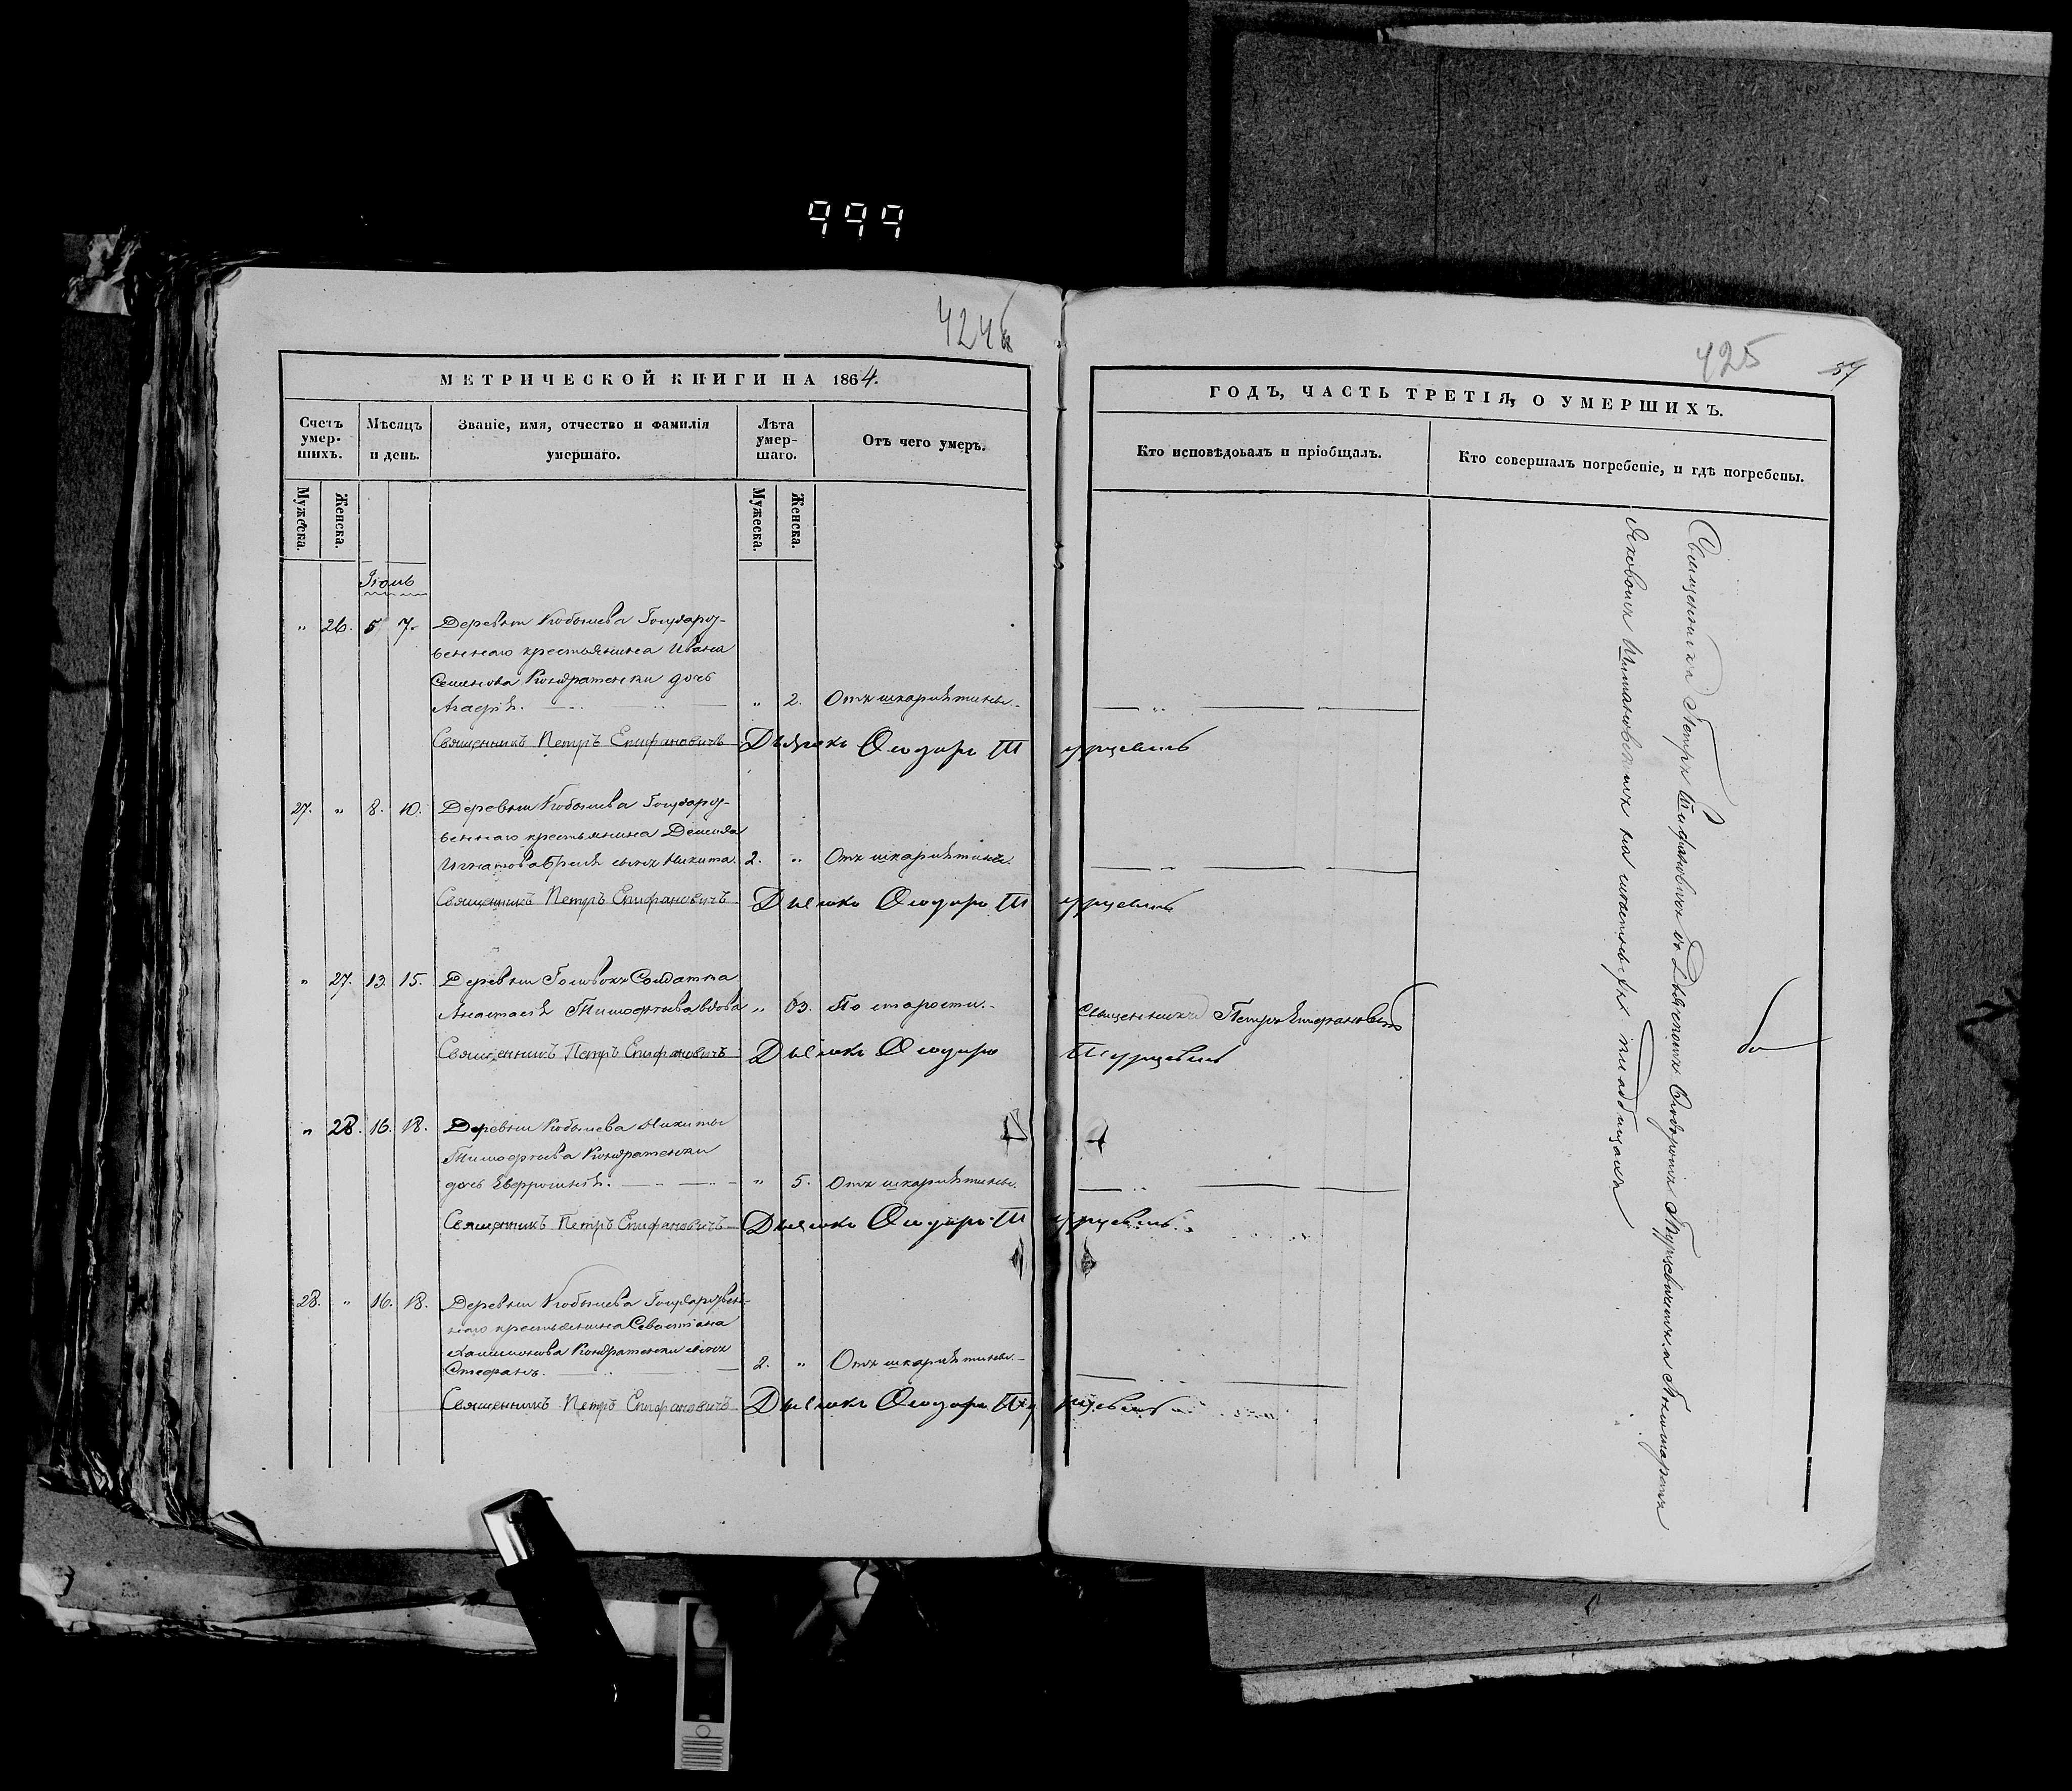 999
424б
МЕТРИЧЕСКОЙ КНИГИ НА 1864.
Счетъ умер-шихъ.
Мѣсяцъ и день.
Званіе, имя, отчество и фамилія умершаго.
Лѣта умер-шаго.
Отъ чего умеръ.
Мужеска.
Женска.
Мужеска.
Женска.
Іюль
" 26. 5 7. Деревни Кобылева Государст-
веннаго крестьянина Ивана
Семенова Кондратенки дочь
Агафія. " 2. Отъ шкарлятины.
Священникъ Петръ Епифановичъ Дьячокъ Ѳеодоръ Турцевичъ
27. " 8. 10. Деревни Кобылева Государст-
веннаго крестьянина Демида
Игнатова сынъ Никита. 2. " Отъ шкарлятины.
Священникъ Петръ Епифановичъ Дьячокъ Ѳеодоръ Турцевичъ
" 27. 13. 15. Деревни Головокъ Солдатка
Анастасія Тимофѣева вдова " 63. По старости.
Священникъ Петръ Епифановичъ Дьячокъ Ѳеодоръ Турцевичъ
" 28. 16. 18. Деревни Кобылева Никиты
Тимофѣева Кондратенки
дочь Евфросинія. " 5. Отъ шкарлятины.
Священникъ Петръ Епифановичъ Дьячокъ Ѳеодоръ Турцевичъ
28. " 16. 18. Деревни Кобылева Государствен-
наго крестьянина Севастіана
Кондратенки сынъ
Стефанъ. 2. " Отъ шкарлятины.
Священникъ Петръ Епифановичъ Дьячокъ Ѳеодоръ Турцевичъ
425
ГОДЪ, ЧАСТЬ ТРЕТІЯ, О УМЕРШИХЪ.
Кто исповѣдовалъ и пріобщалъ.
Кто совершалъ погребеніе, и гдѣ погребены.
Священникъ Петръ Епифановичъ
Священникъ Петръ Епифановичъ съ Дьячкомъ Ѳеодоромъ Турцевичемъ и Пономаремъ
Яковомъ на мѣстныхъ кладбищахъ